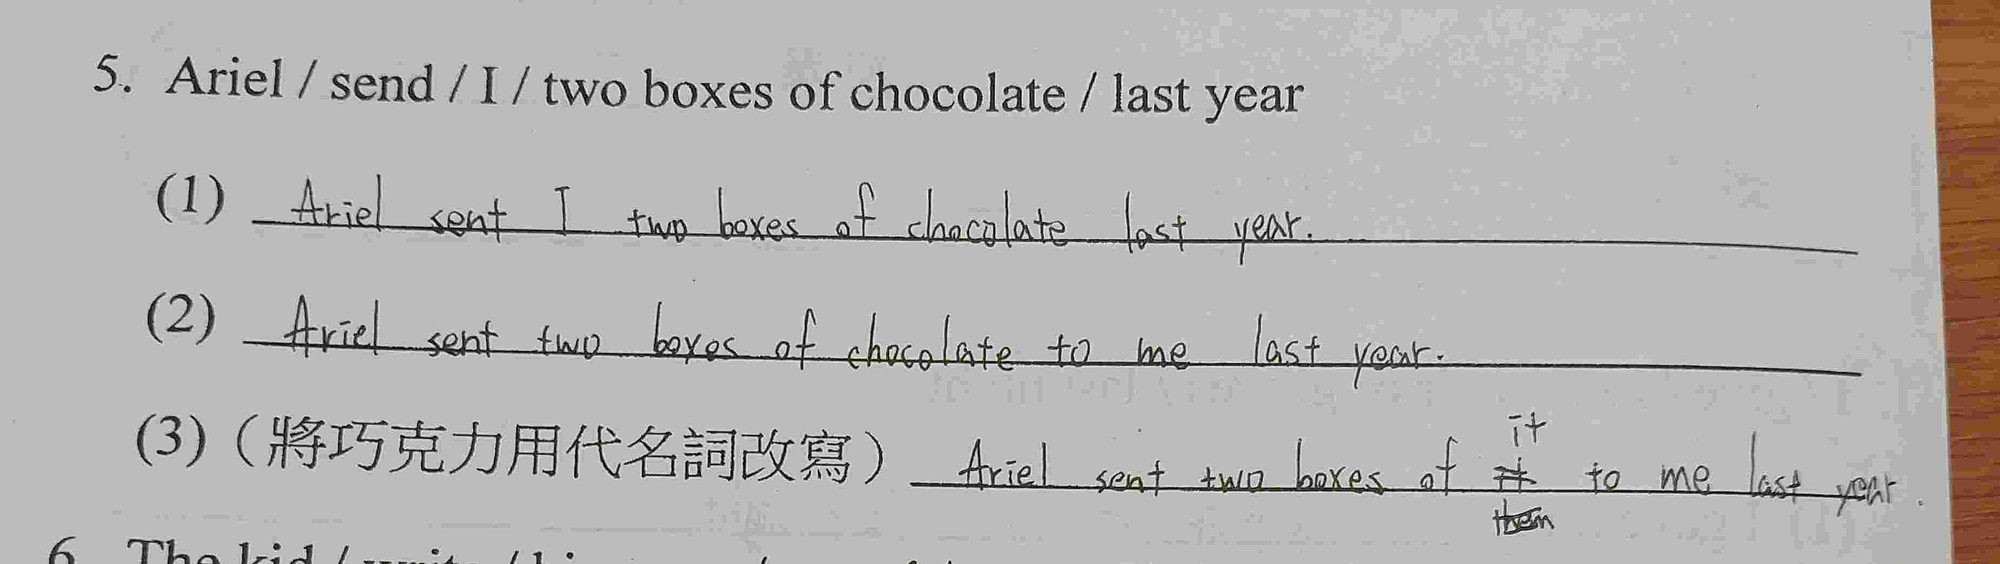 5. Ariel / send / I / two boxes of chocolate / last year
(1) Ariel sent I two boxes of chocolate last year.
(2) Ariel sent two boxes of chocolate to me last year.
it
(3)（將巧克力用代名詞改寫） Ariel sent two boxes of it to me last year.
them
6 The kid /